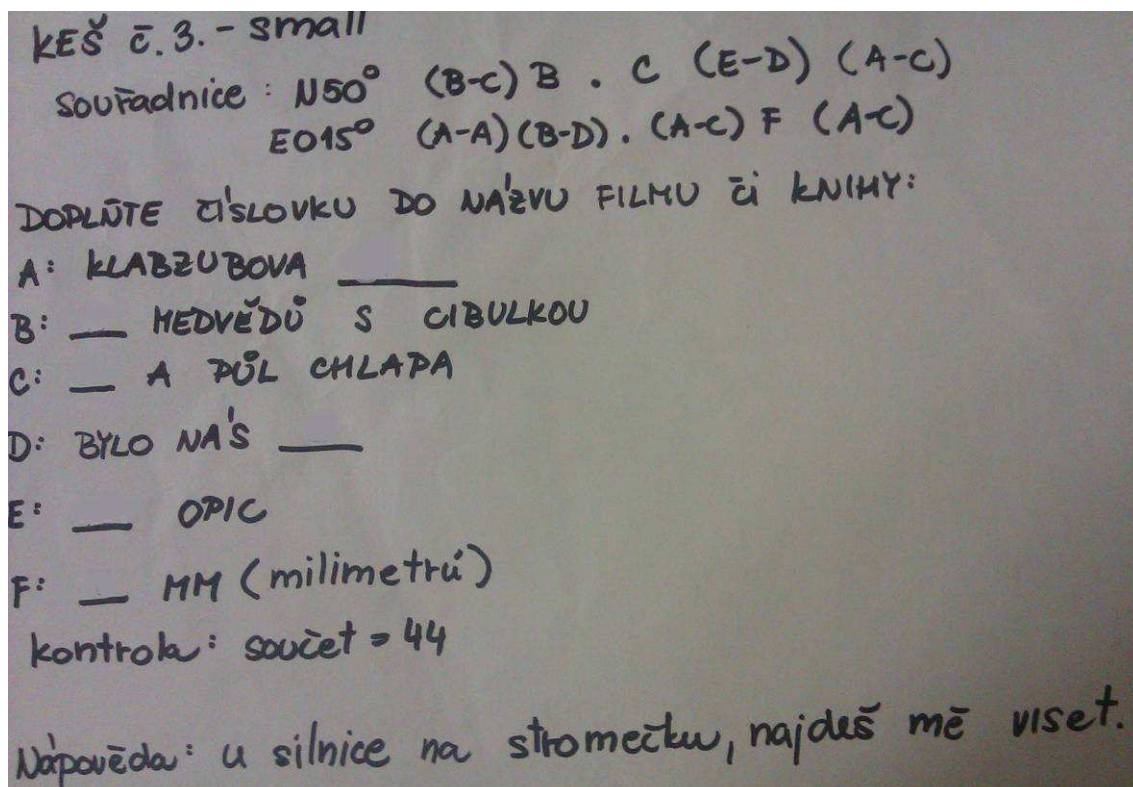 KEŠ č.3.- small
souřadnice : N50° (B-C) B . C (E-D) (A-C)
E015° (A-A)(B-D). (A-C) F (A-C)
DOPLŇTE ČÍSLOVKU DO NÁZVU FILMU či KNIHY:
A: KLABZUBOVA ____
B: __ MEDVĚDŮ S CIBULKOU
C: __ A PŮL CHLAPA
D: BYLO NÁS ___
E: __ OPIC
F: __ MM (milimetrů)
kontrola: součet = 44
Nápověda: u silnice na stromečku, najdeš mě viset.